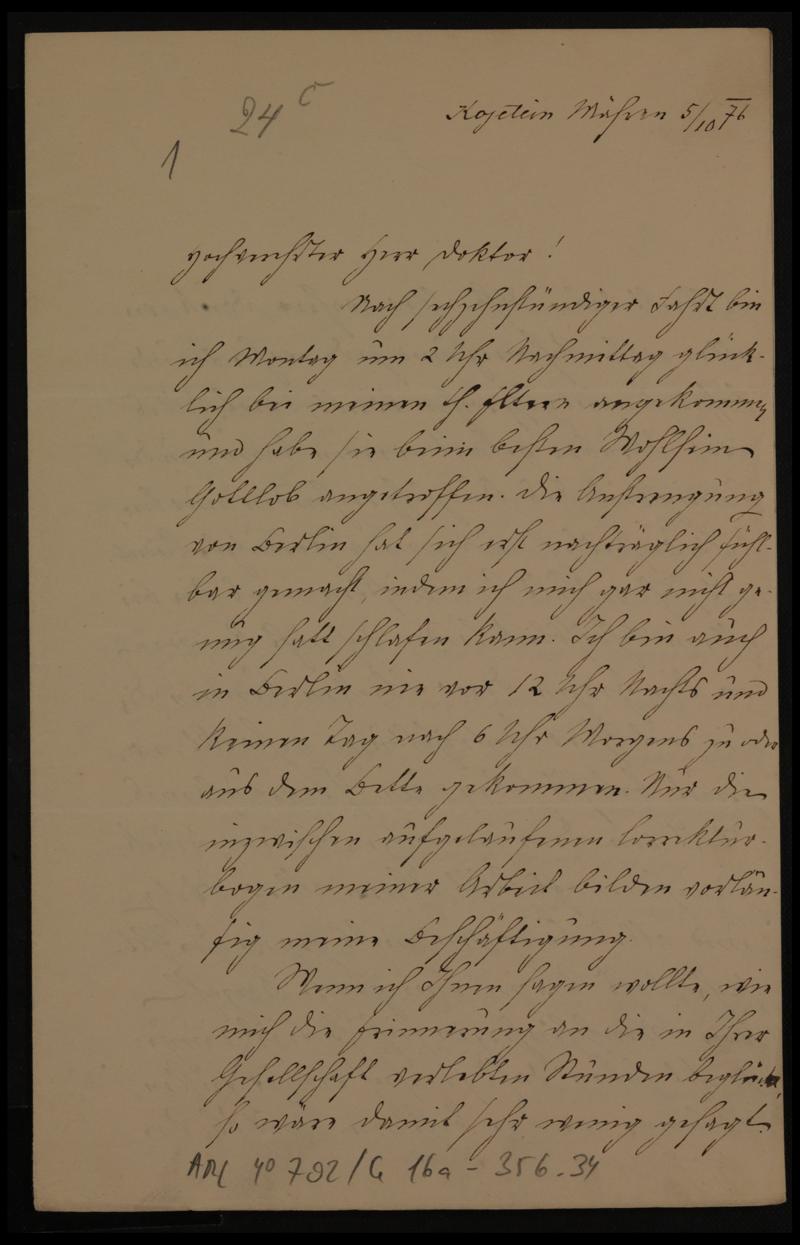 24 c
1
Kojetein Mähren 5/10 76
Hochverehrter Herr Doktor!
Nach sechzehnstündiger Fahrt bin
ich Montag um 2 Uhr Nachmittag glück-
lich bei meinen th. Eltern angekommen
und habe sie beim besten Wohlsein
Gottlob angetroffen. Die Anstrengung
von Berlin hat sich erst nachträglich fühl-
bar gemacht, indem ich mich gar nicht ge-
nug satt schlafen kann. Ich bin auch
in Berlin nie vor 12 Uhr Nachts und
keinen Tag nach 6 Uhr Morgens zu oder
aus dem Bette gekommen. Nur die
inzwischen aufgelaufenen Correktur-
bogen meiner Arbeit bilden vorläu-
fig meine Beschäftigung.
Wenn ich Ihnen sagen wollte, wie
mich die Erinnerung an die in Ihrer
Gesellschaft verlebten Stunden beglückt,
so wäre damit sehr wenig gesagt.
4° 792/G 16a - 356.34